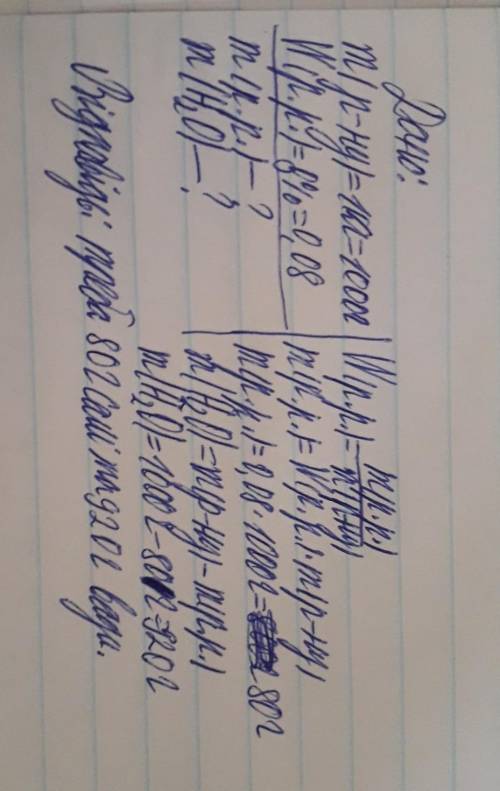 Дано:
m(р-ну)=1кг=1000г
W(р.р.)=8%=0,08
m(р.р.)-?
m(H₂O)-?
W(р.р.)=m(р.р.)/m(р-ну)
m(р.р.)=W(р.р.)·m(р-ну)
m(р.р.)=0,08·1000г=80г
m(H₂O)=m(р-ну)-m(р.р.)
m(H₂O)=1000г-80г=920г
Відповідь: треба 80г солі та 920г води.